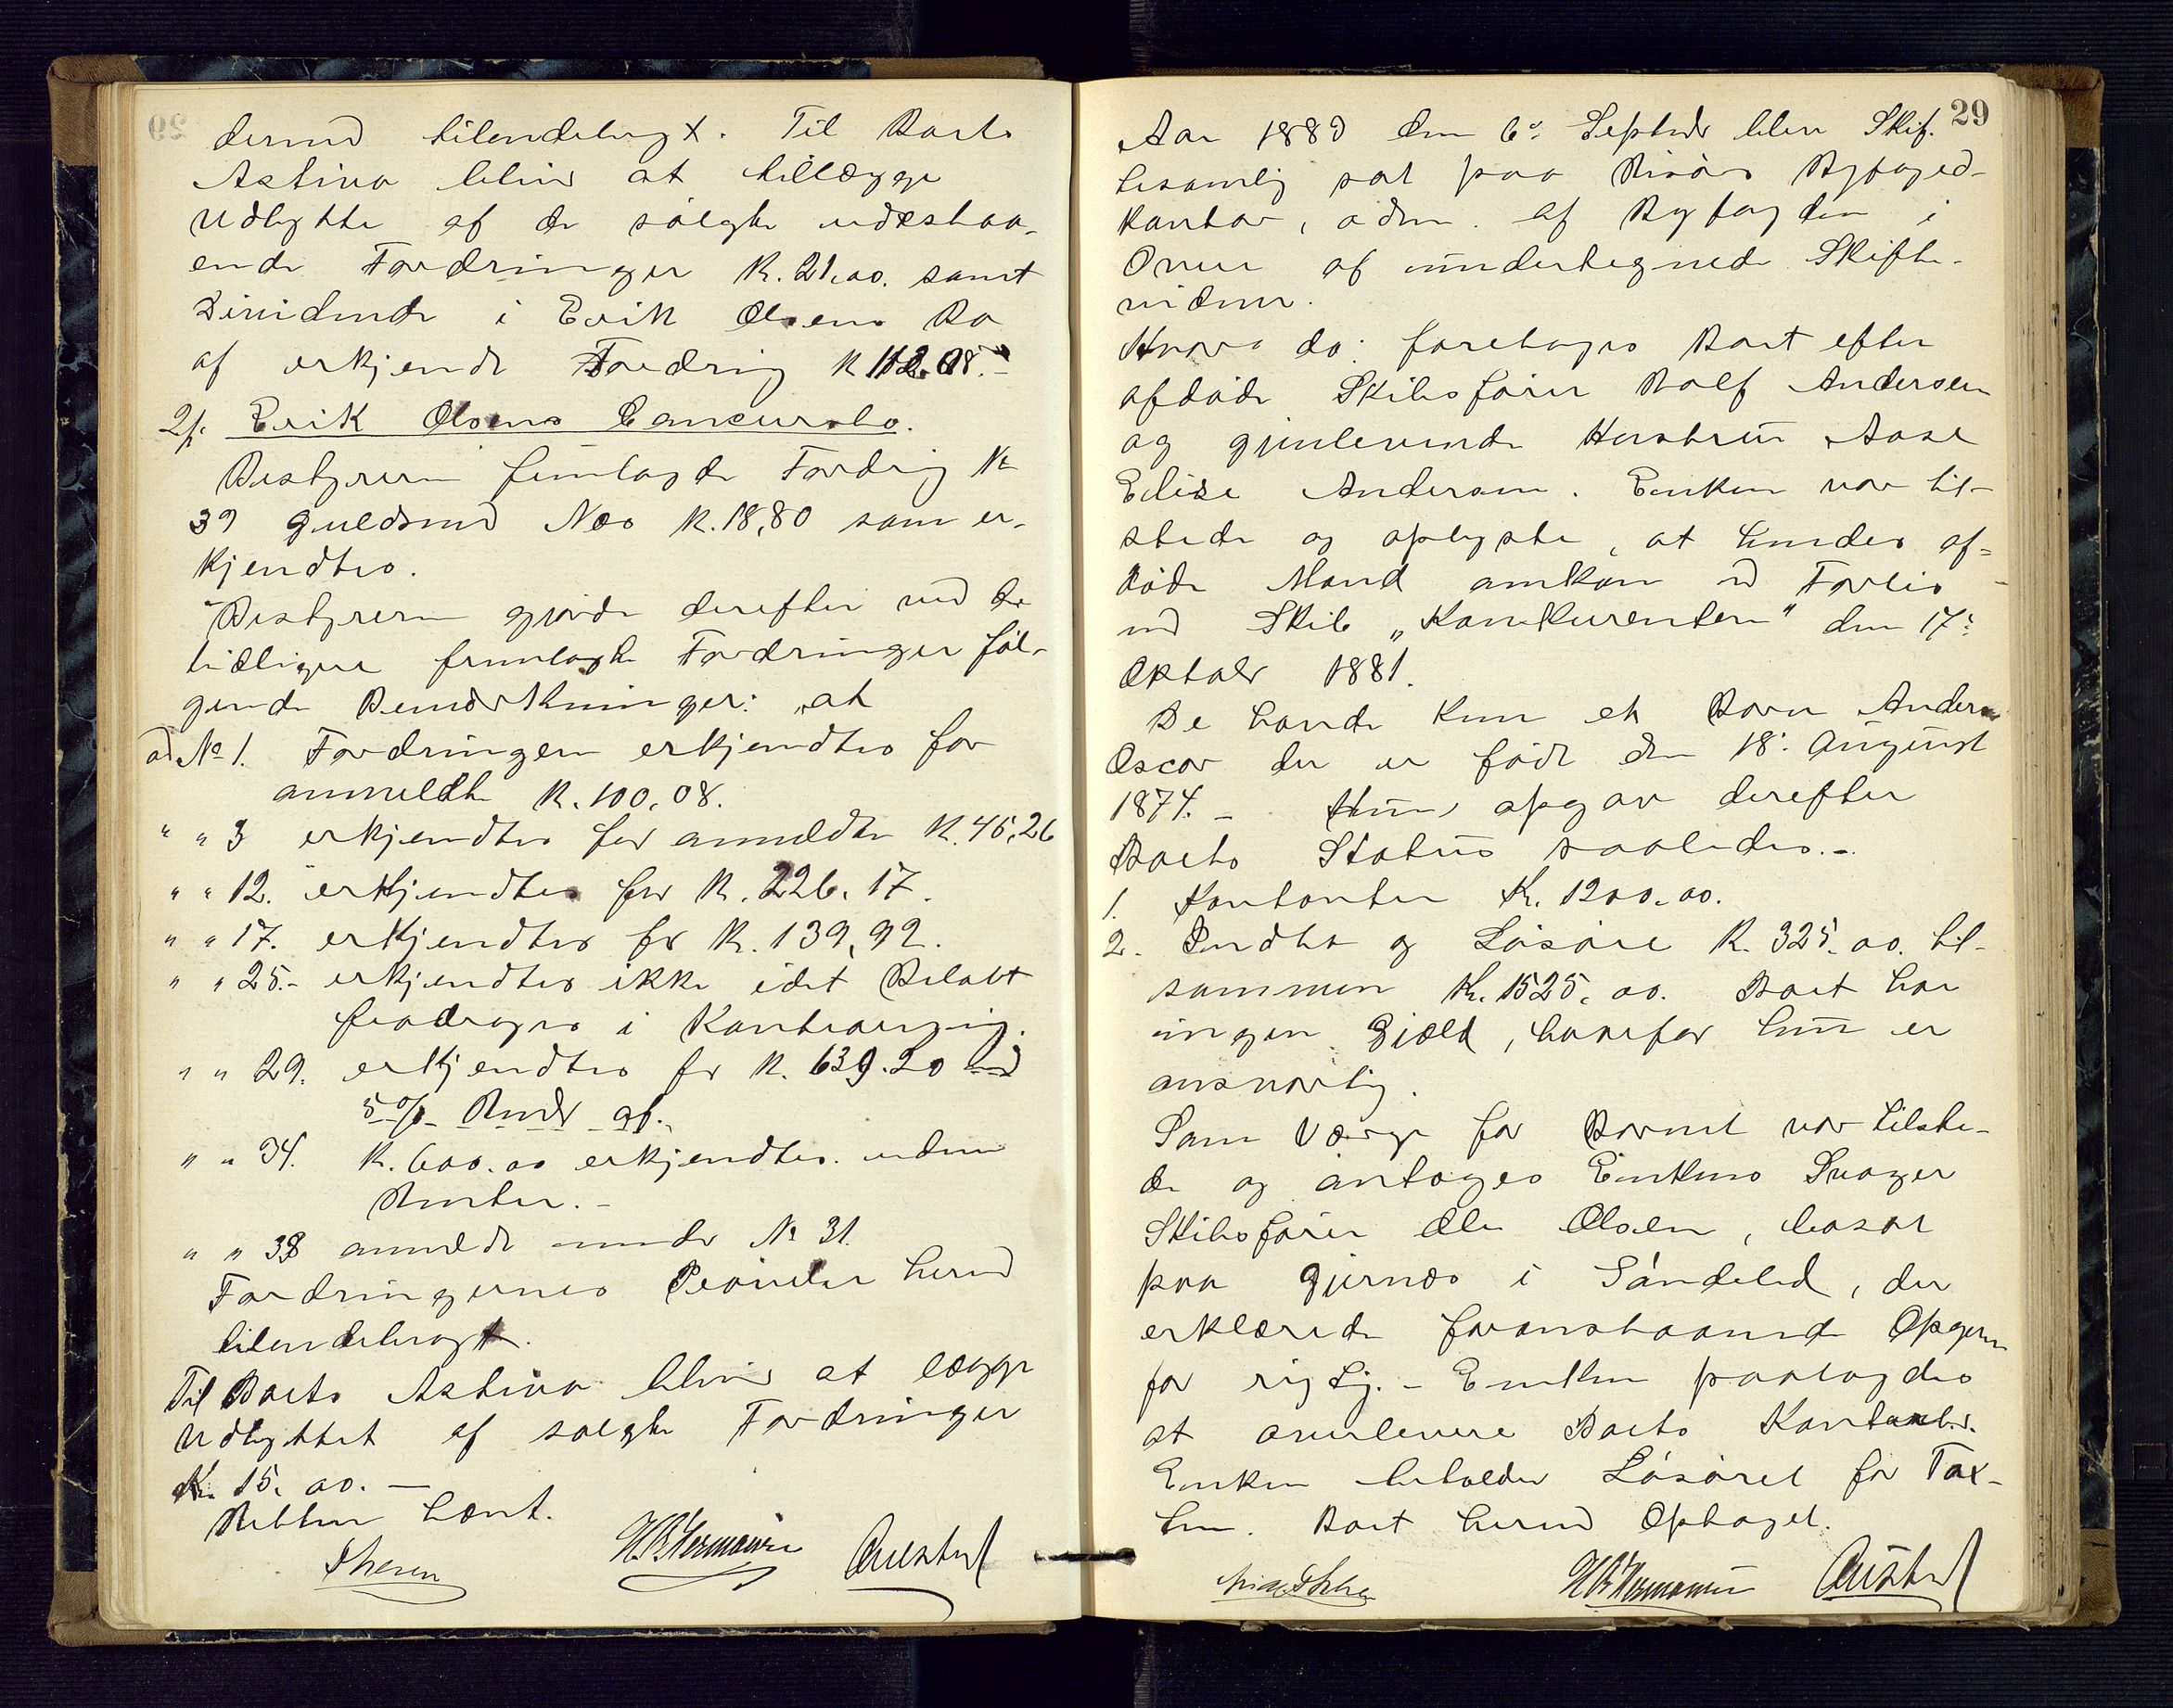 dermed tilendebragt. Til Boets
Activa bliver at tillægge
Udbytte af de solgte udestaa-
ende Fordringer K. 21.00. samt
Dividende i Erik Olsens Bo
af erkjendt Fordring K 112.08.-
2/. Erik Olsens Concursbo.
Bestyreren fremlagde Fordrig No
39 Guldsmed Næs K. 18,80 som er-
kjendtes.
Bestyreren gjorde derefter ved de
tidligere fremlagte Fordringer føl-
gende Bemærkninger: at
ad No 1. Fordringen erkjendtes for
anmeldte K. 100,08.
" " 3 erkjendtes for anmeldte K. 45,26
" " 12. erkjendtes for K. 226,17.
" " 17. erkjendtes for K. 139,92.
" " 25.- erkjendtes ikke idet Beløbt
fradrages i Kontraregnig.
" " 29. erkjendtes for K. 639.20 med
5 % Rente af.
" " 34. K. 600.00 erkjendtes uden
Renter.-
" " 38 anmeldt under No 31.
Fordringernes Prøvelse hermed
tilendebragt.
Til Boets Activa bliver at lægge
Udbyttet af solgte Fordringer
K. 15,00.—
Retten hævet.
H. B. Hermansen
29
Aar 1889 den 6. Septembr blev Skif-
tesamlig sat paa Risørs Byfoged-
kontor, adm. af Byfogden i
Overv. af undertegnede Skifte-
vidner.
Hvorda: foretoges Boet efter
afdøde Skibsfører Rolf Andersen
og gjenlevende Hustru Aase
Elise Andersen. Enken var til-
stede og oplyste, at hendes af-
døde Mand omkom ved Forlis
med Skib „Konkurenten" den 17.
Oktobr 1881.
De havde kun et Barn Anders
Oscar der er født den 18. August
1874. - Hun opgav derefter
Boets Status saaledes.-
1. Kontanter K. 1200.00.
2. Indbo og Løsøre K. 325.00. til-
sammen K. 1525,00. Boet har
ingen Gjæld, hvorfor hun er
ansvarlig.
Som Værge for Barnet var tilste-
de og antoges Enkens Svoger
Skibsfører Ole Olsen, bosat
paa Gjernæs i Søndeled, der
erklærede foranstaaende Opgave
for rigtig. - Enken paalagdes
at overlevere Boets Kontanter.
Enken beholder Løsøret for Tax-
ten. Boet hermed Optaget.
H B Hermansen